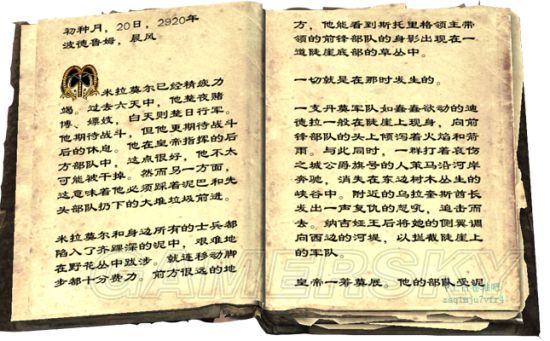 初种月,20日,2920年
波德鲁姆,晨风
米拉莫尔已经精疲力
竭。过去六天中,他整夜赌
博、嫖妓,白天则整日行军。
他期待战斗,但他更期待战斗
后的休息。他在皇帝指挥的后
方部队中,这点很好,他不太
可能被干掉。然而另一方面,
这意味着他必须踩着泥巴和先
头部队扔下的大堆垃圾前进。
米拉莫尔和身边所有的士兵都
陷入了齐踝深的泥中,艰难地
在野花丛中跋涉。就连移动脚
步都十分费力。前方很远的地
方,他能看到斯托里格领主带
领的前锋部队的身影出现在一
道陡崖底部的草丛中。
一切就是在那时发生的。
一支丹莫军队如蠢蠢欲动的迪
德拉一般在陡崖上现身,向前
锋部队的头上倾泻着火焰和箭
雨。与此同时,一群打着哀伤
之城公爵旗号的人策马沿河岸
奔驰,消失在东边树木丛生的
峡谷中。附近的乌拉奎斯酋长
发出一声复仇的怒吼,追击而
去。纳吉娅王后将她的侧翼调
向西边的河堤,以拦截陡崖上
的军队。
皇帝一筹莫展。他的部队受泥
GAMERSKY